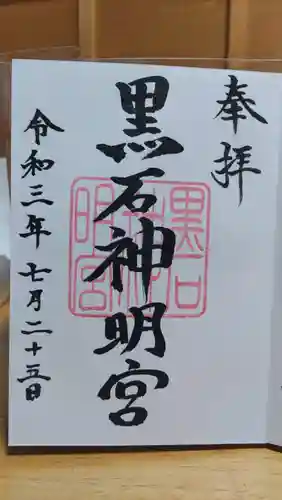 奉拝
黒石神明宮
黒石神明宮
令和三年七月二十五日